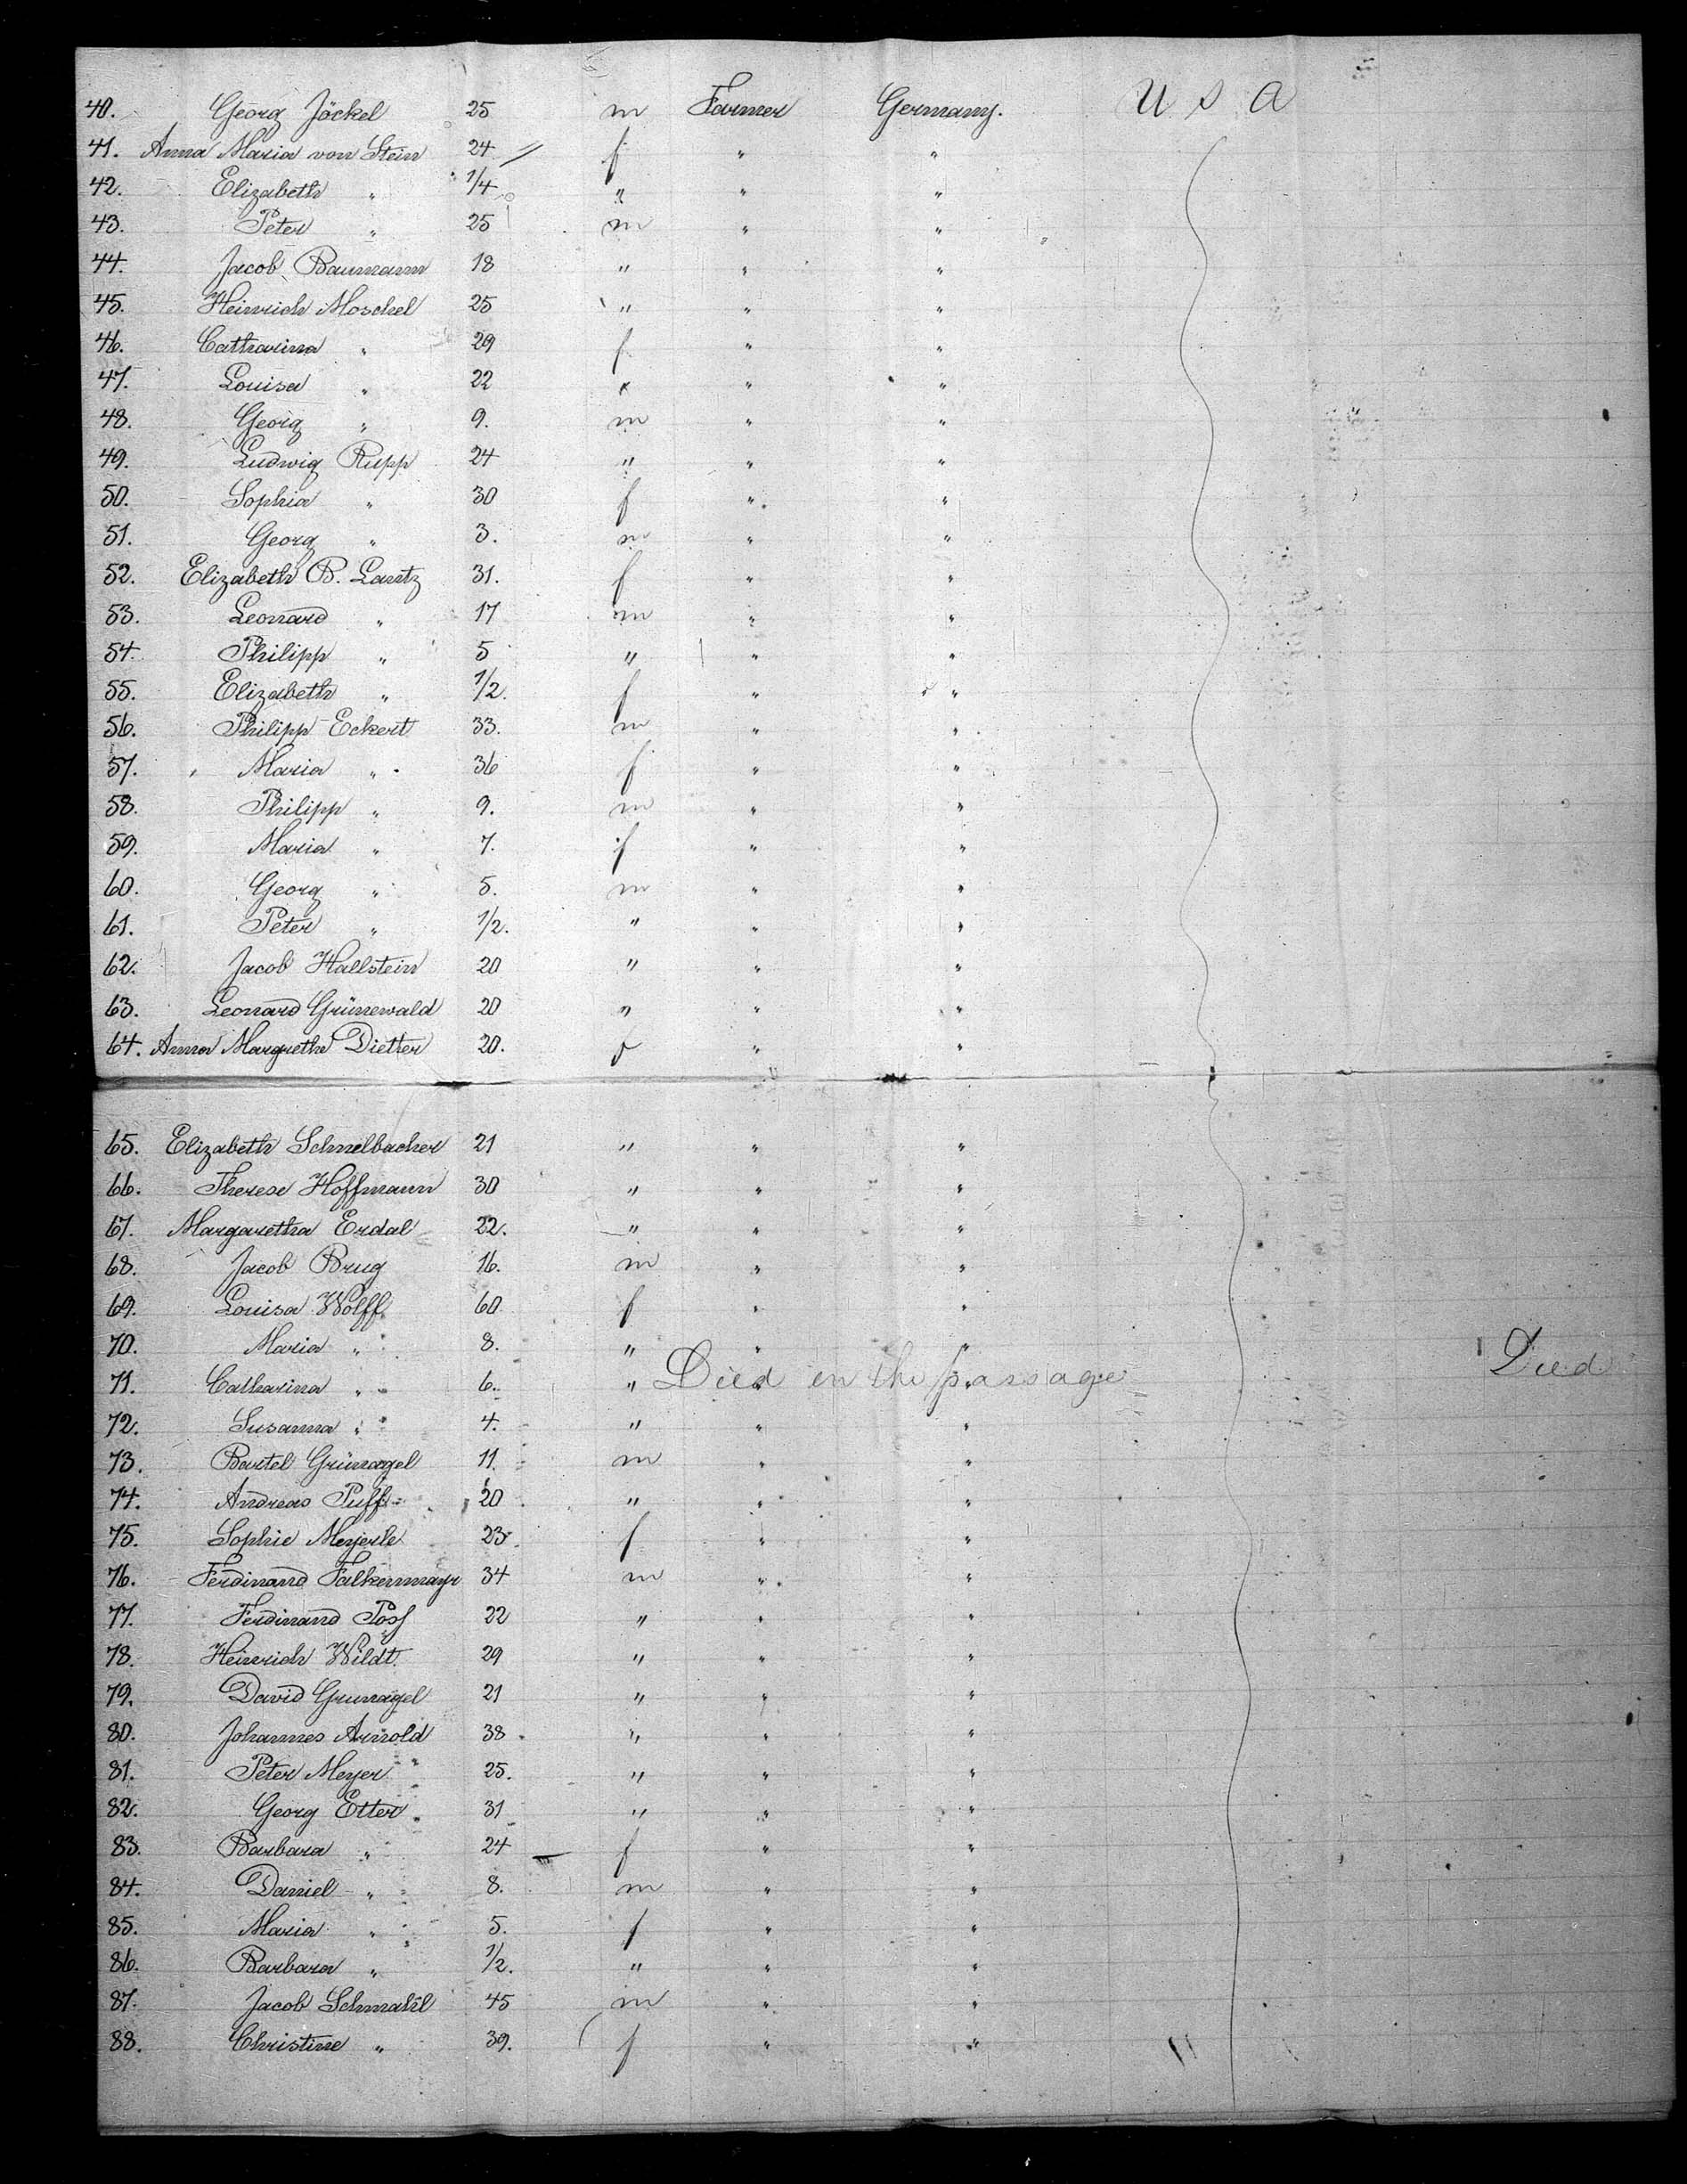 40. Georg Jöckel 25 m Farmer Germany. U S A
41. Anna Maria von Stein 24 f " "
42. Elizabeth " 1/4 " " "
43. Peter " 25 m " "
44. Jacob Baumann 18 " " "
45. Heinrich Moschel 25 " " "
46. Catharina " 29 f " "
47. Louisa " 22 " " "
48. Georg " 9. m " "
49. Ludwig Rupp 24 " " "
50. Sophia " 30 f " "
51. Georg " 3. m " "
52. Elizabeth B. Lantz 31. f " "
53. Leonard " 17 m " "
54. Philipp " 5 " " "
55. Elizabeth " 1/2. f " "
56. Philipp Eckert 33. m " "
57. Maria " 36 f " "
58. Philipp " 9. m " "
59. Maria " 7. f " "
60. Georg " 5. m " "
61. Peter " 1/2. " " "
62. Jacob Hallstein 20 " " "
63. Leonard Grünewald 20 " " "
64. Anna Margreth Dietter 20. f " "
65. Elizabeth Schnelbacher 21 " " "
66. Therese Hoffmann 30 " " "
67. Margaretha Erdal 22. " " "
68. Jacob Brug 16. m " "
69. Louisa Wolff 60 f " "
70. Maria " 8. " " "
71. Catharina " 6. " Died on the passage " Died
72. Susanna " 4. " " "
73. Bartel Grünagel 11. m " "
74. Andreas Puff 20 " " "
75. Sophie Meyerle 23. f " "
76. Ferdinand Falkenmayr 34 m " "
77. Ferdinand Poss 22 " " "
78. Heinrich Wildt. 29 " " "
79. David Grunagel 21 " " "
80. Johannes Arnold 38 " " "
81. Peter Meyer 25. " " "
82. Georg Etter 31 " " "
83. Barbara " 24 f " "
84. Daniel " 8. m " "
85. Maria " 5. f " "
86. Barbara " 1/2. " " "
87. Jacob Schmahl 45 m " "
88. Christine " 39. f " " "